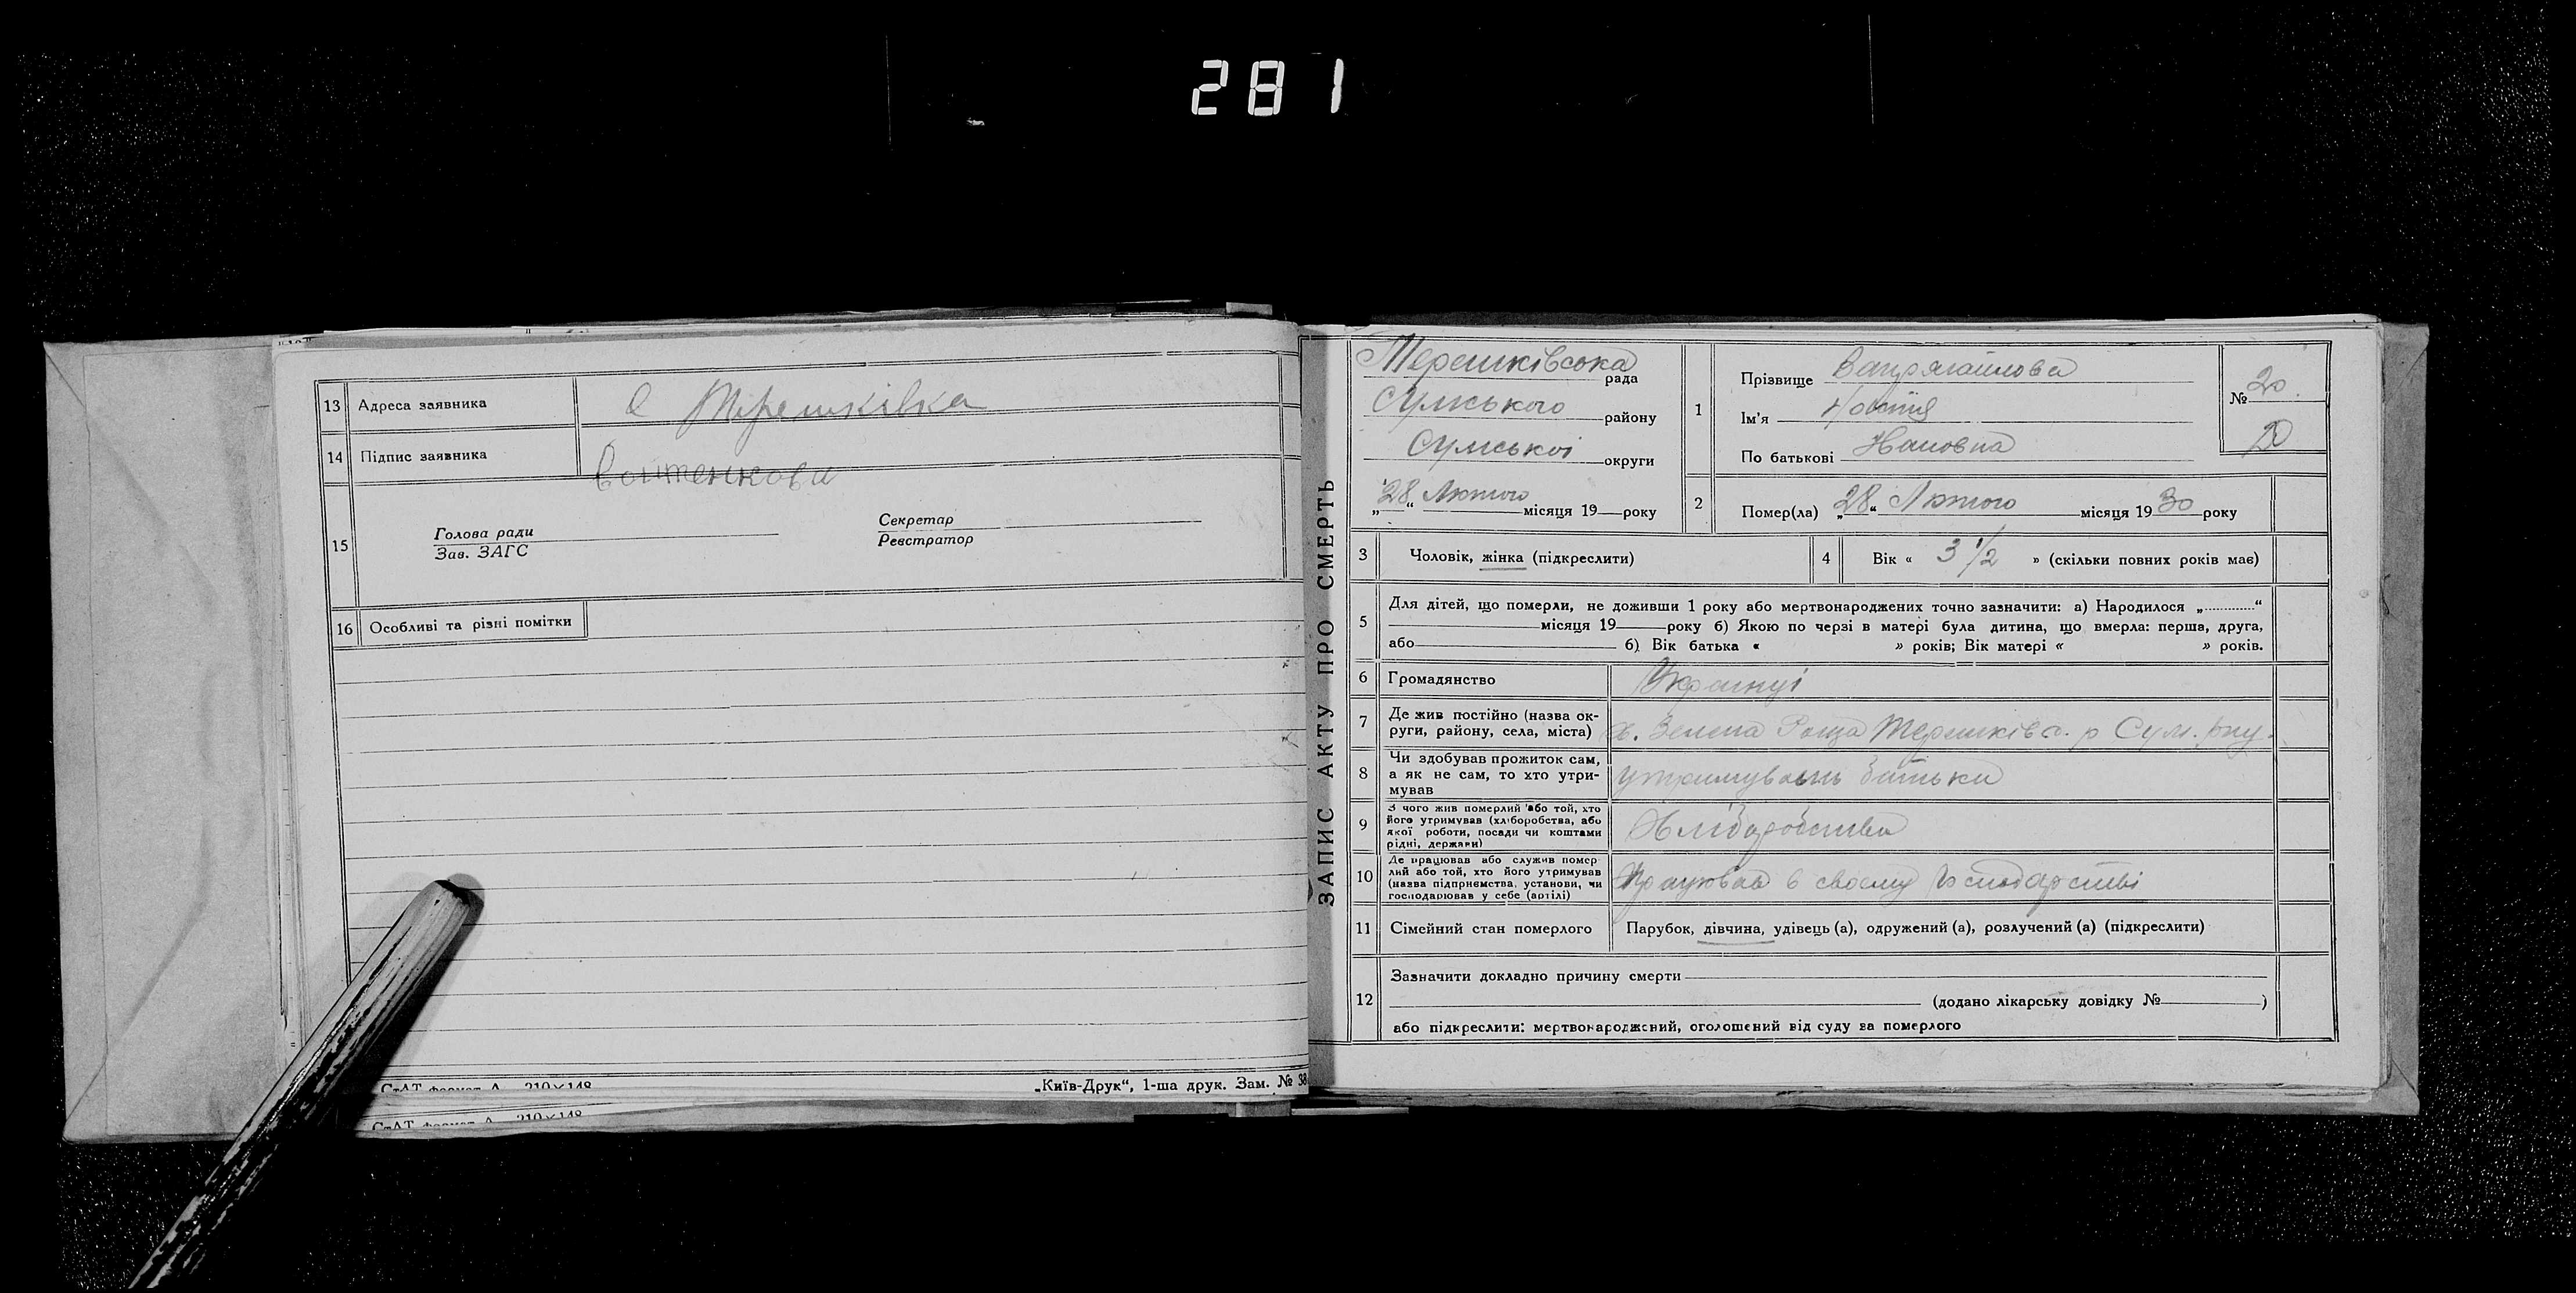 281
13 Адреса заявника с Терешківка
14 Підпис заявника
15 Голова ради
Зав. ЗАГС
Секретар
Реєстратор
16 Особливі та різні помітки
СтАТ формат А 210×148
„Київ-Друк“, 1-ша друк. Зам. № 38
СтАТ формат А 210×148
ЗАПИС АКТУ ПРО СМЕРТЬ
Терешківська рада
Сумського району
Сумської округи
„28“ Лютого місяця 19 року
1 Прізвище
Ім'я
По батькові
№ 20
20
2 Помер(ла) „28“ Лютого місяця 1930 року
3 Чоловік, жінка (підкреслити)
4 Вік « 3 1/2 » (скільки повних років має)
5 Для дітей, що померли, не доживши 1 року або мертвонароджених точно зазначити: а) Народилося „ “
місяця 19 року б) Якою по черзі в матері була дитина, що вмерла: перша, друга,
або б) Вік батька « » років; Вік матері « » років.
6 Громадянство Українці
7 Де жив постійно (назва ок-
руги, району, села, міста) х. Зелена Роща Терешківс. р Сум. рну.
8 Чи здобував прожиток сам,
а як не сам, то хто утри-
мував утримувань батька
9 З чого жив померлий або той, хто
його утримував (хліборобства, або
якої роботи, посади чи коштами
рідні, держави) Хліборобства
10 Де працював або служив помер
лий або той, хто його утримував
(назва підприємства, установи, чи
господарював у себе (артілі) Працював в своєму господарстві
11 Сімейний стан померлого Парубок, дівчина, удівець (а), одружений (а), розлучений (а) (підкреслити)
12 Зазначити докладно причину смерти
(додано лікарську довідку № )
або підкреслити: мертвонароджений, оголошений від суду за померлого